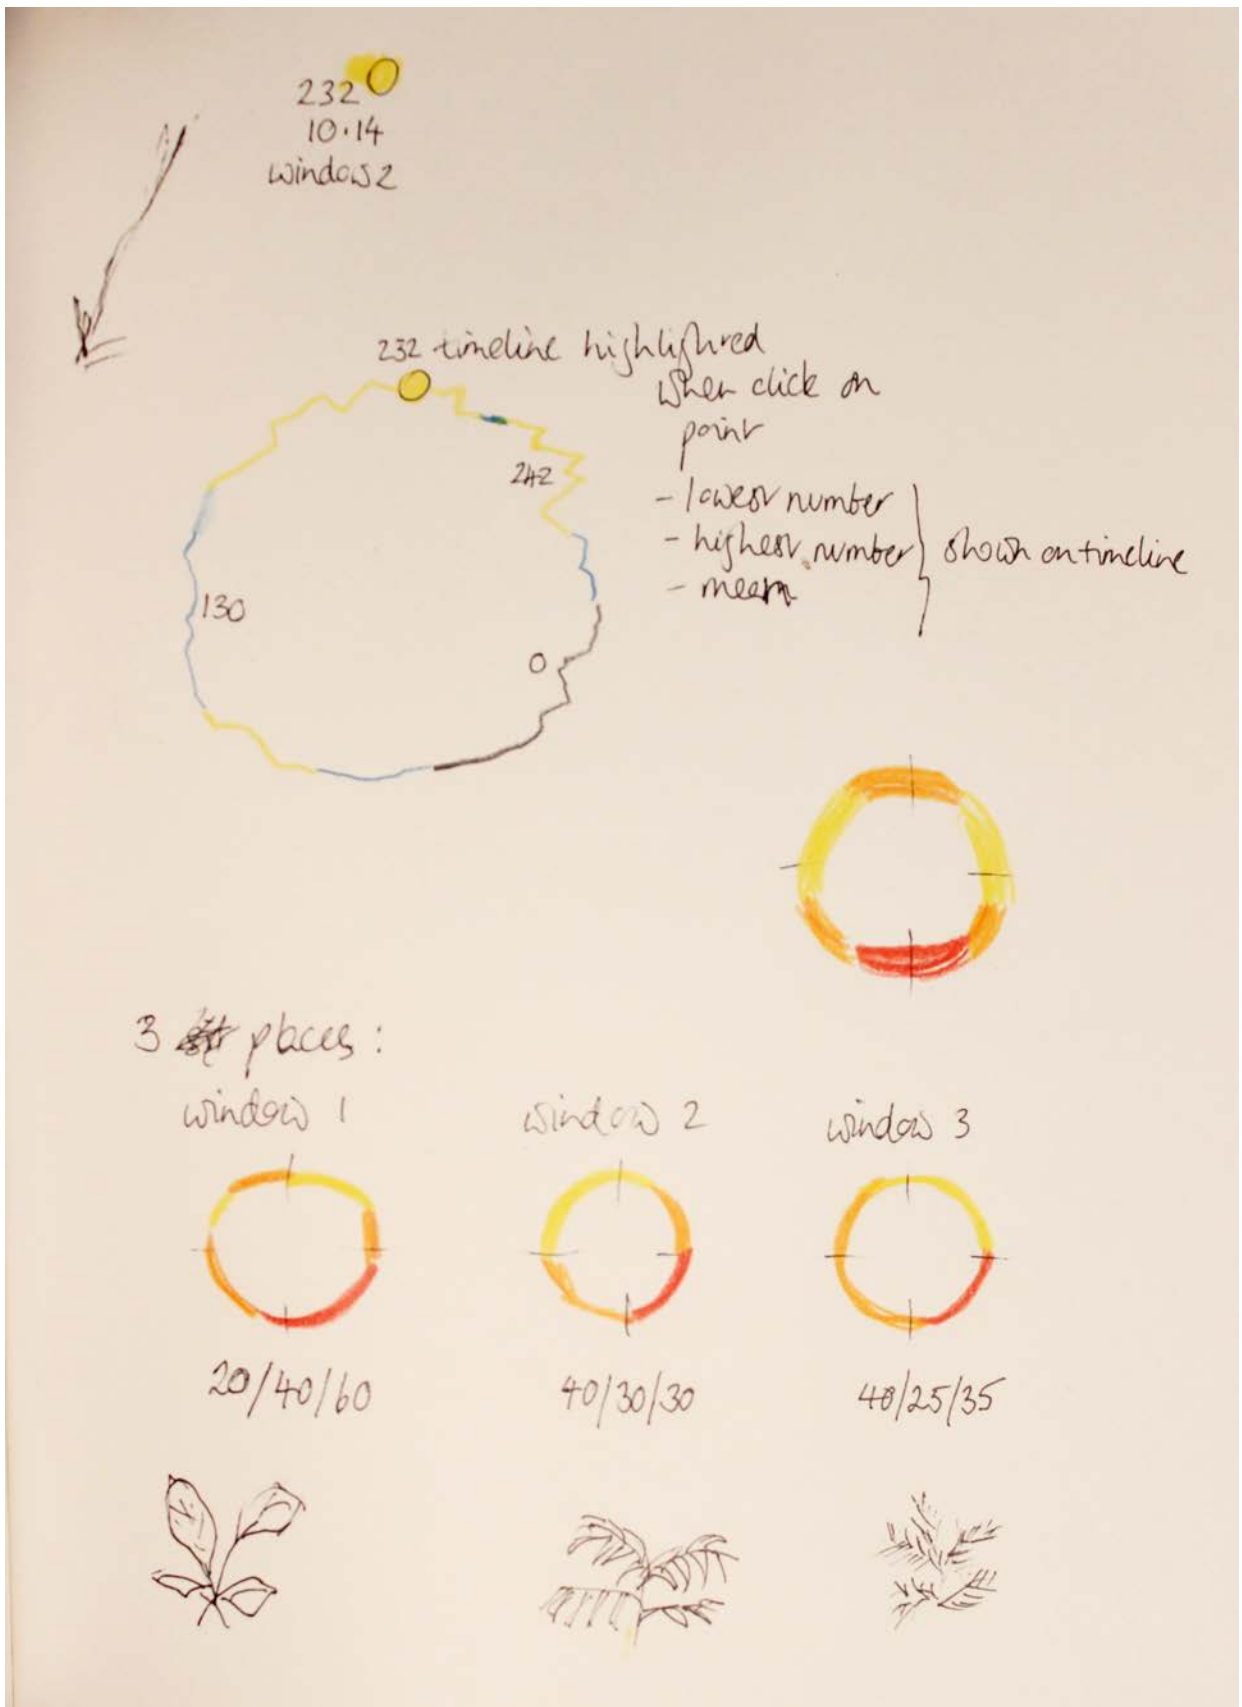 232
10.14
window 2
232 timeline highlighted
when click on
point
- lowest number
- highest number
- mean
shown on timeline
242
130
0
3 places:
window 1
window 2
window 3
20/40/60
40/30/30
40/25/35